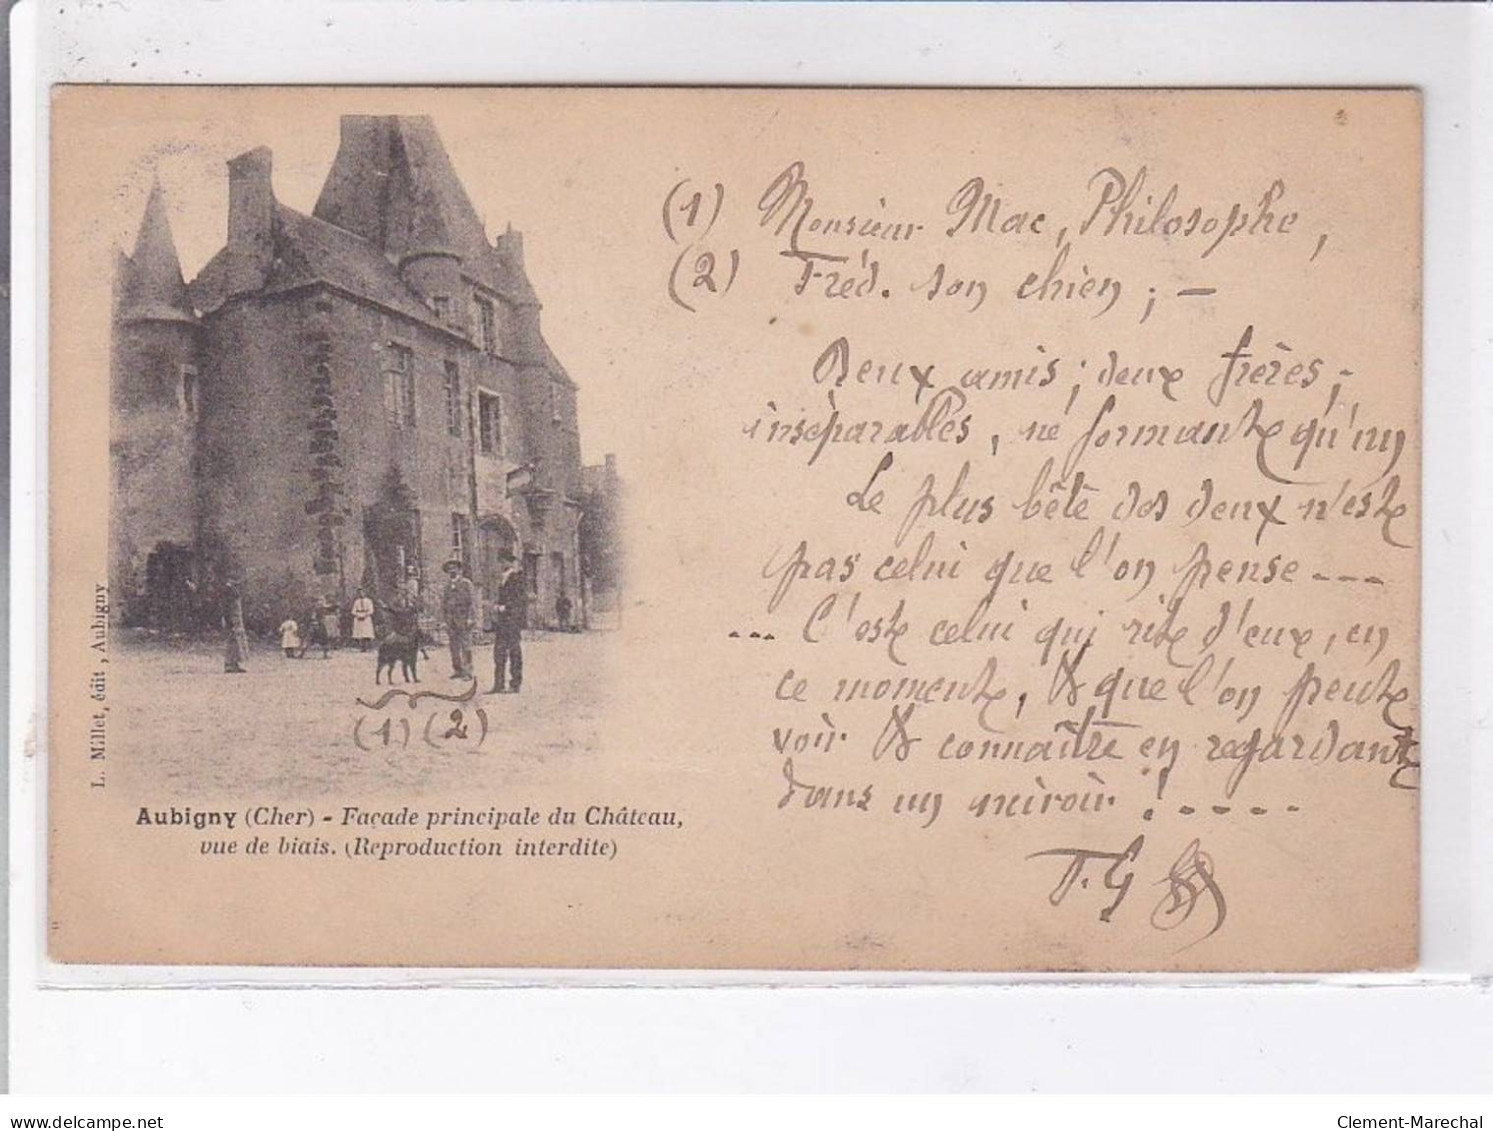 (1) Monsieur Mac, Philosophe,
(2) Fréd. son chien ; —
Deux amis ; deux frères ;
inséparables, ne formant qu'un
Le plus bête des deux n'est
pas celui que l'on pense - - -
... C'est celui qui rit d'eux, en
ce moment, & que l'on peut
voir & connaître en regardant
dans un miroir ! - - - -
T. G
(1) (2)
L. Millet, édit, Aubigny
Aubigny (Cher) - Façade principale du Château,
vue de biais. (Reproduction interdite)
delcampe.net
Clement-Marechal